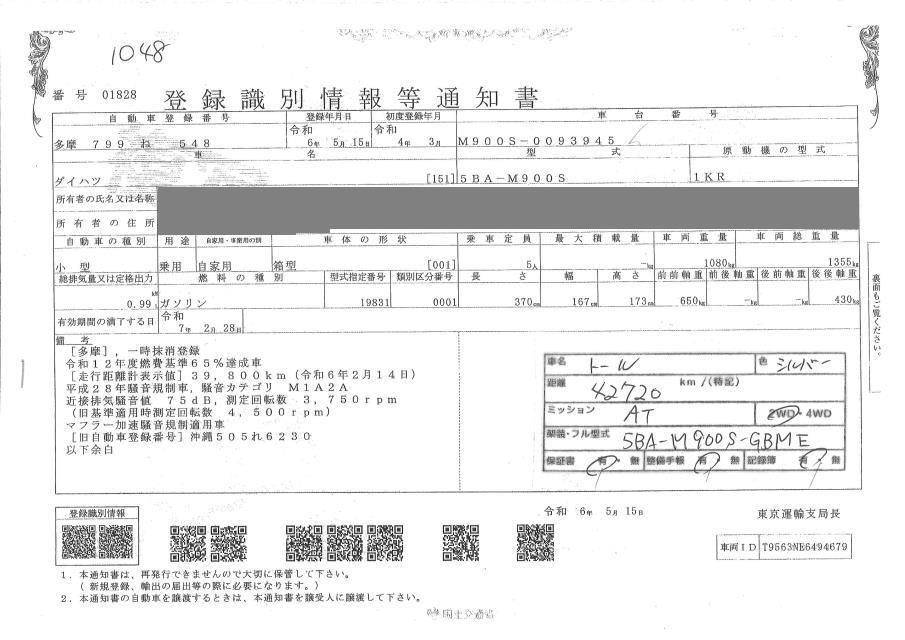 1048
番号 01828 登録識別情報等通知書
自動車登録番号 登録年月日 初度登録年月 車台番号
多摩 799 ね 548 令和 6年 5月 15日 令和 4年 3月 M900S-0093945
車名 型式 原動機の型式
ダイハツ [151] 5BA-M900S 1KR
所有者の氏名又は名称
所有者の住所
自動車の種別 用途 自家用・事業用の別 車体の形状 乗車定員 最大積載量 車両重量 車両総重量
小型 乗用 自家用 箱型 [001] 5人 -kg 1080kg 1355kg
総排気量又は定格出力 燃料の種別 型式指定番号 類別区分番号 長さ 幅 高さ 前前軸重 前後軸重 後前軸重 後後軸重
0.99 kW L ガソリン 19831 0001 370cm 167cm 173cm 650kg -kg -kg 430kg
有効期間の満了する日 令和 7年 2月 28日
裏面もご覧ください。
備考
[多摩],一時抹消登録
令和12年度燃費基準65%達成車
[走行距離計表示値]39,800km(令和6年2月14日)
平成28年騒音規制車,騒音カテゴリ M1A2A
近接排気騒音値 75dB,測定回転数 3,750rpm
(旧基準適用時測定回転数 4,500rpm)
マフラー加速騒音規制適用車
[旧自動車登録番号]沖縄505れ6230
以下余白
車名 トール 色 シルバー
距離 42720 km/(特記)
ミッション AT 2WD・4WD
架装・フル型式 5BA-M900S-GBME
保証書 有・無 整備手帳 有・無 記録簿 有・無
令和 6年 5月 15日 東京運輸支局長
登録識別情報
車両ID T9563NE6494679
1.本通知書は、再発行できませんので大切に保管して下さい。
(新規登録、輸出の届出等の際に必要になります。)
2.本通知書の自動車を譲渡するときは、本通知書を譲受人に譲渡して下さい。
国土交通省